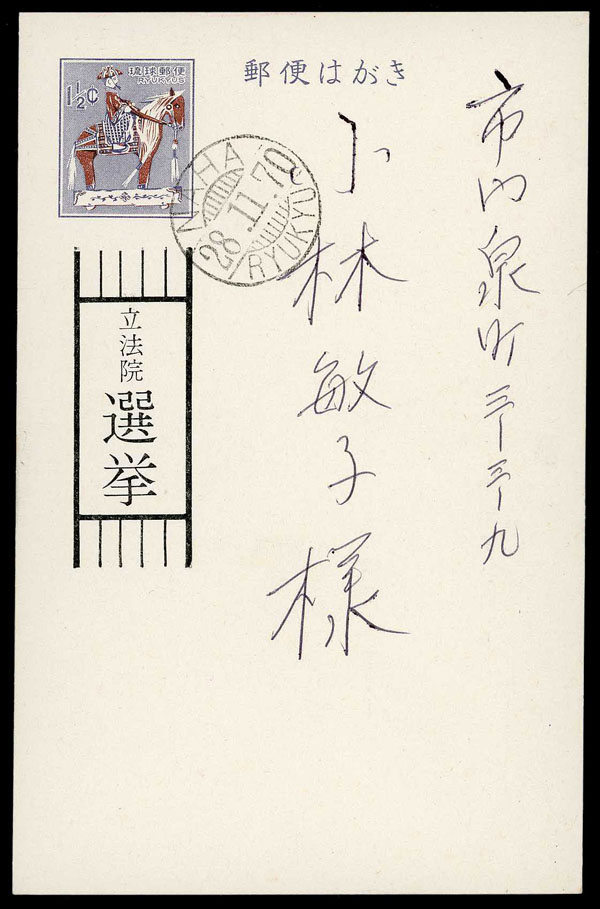 市内泉町三ー三ー九
小林敏子様
郵便はがき
琉球郵便
RYUKYUS
1½¢
NAHA
28.11.70
RYUKYUS
立法院
選挙